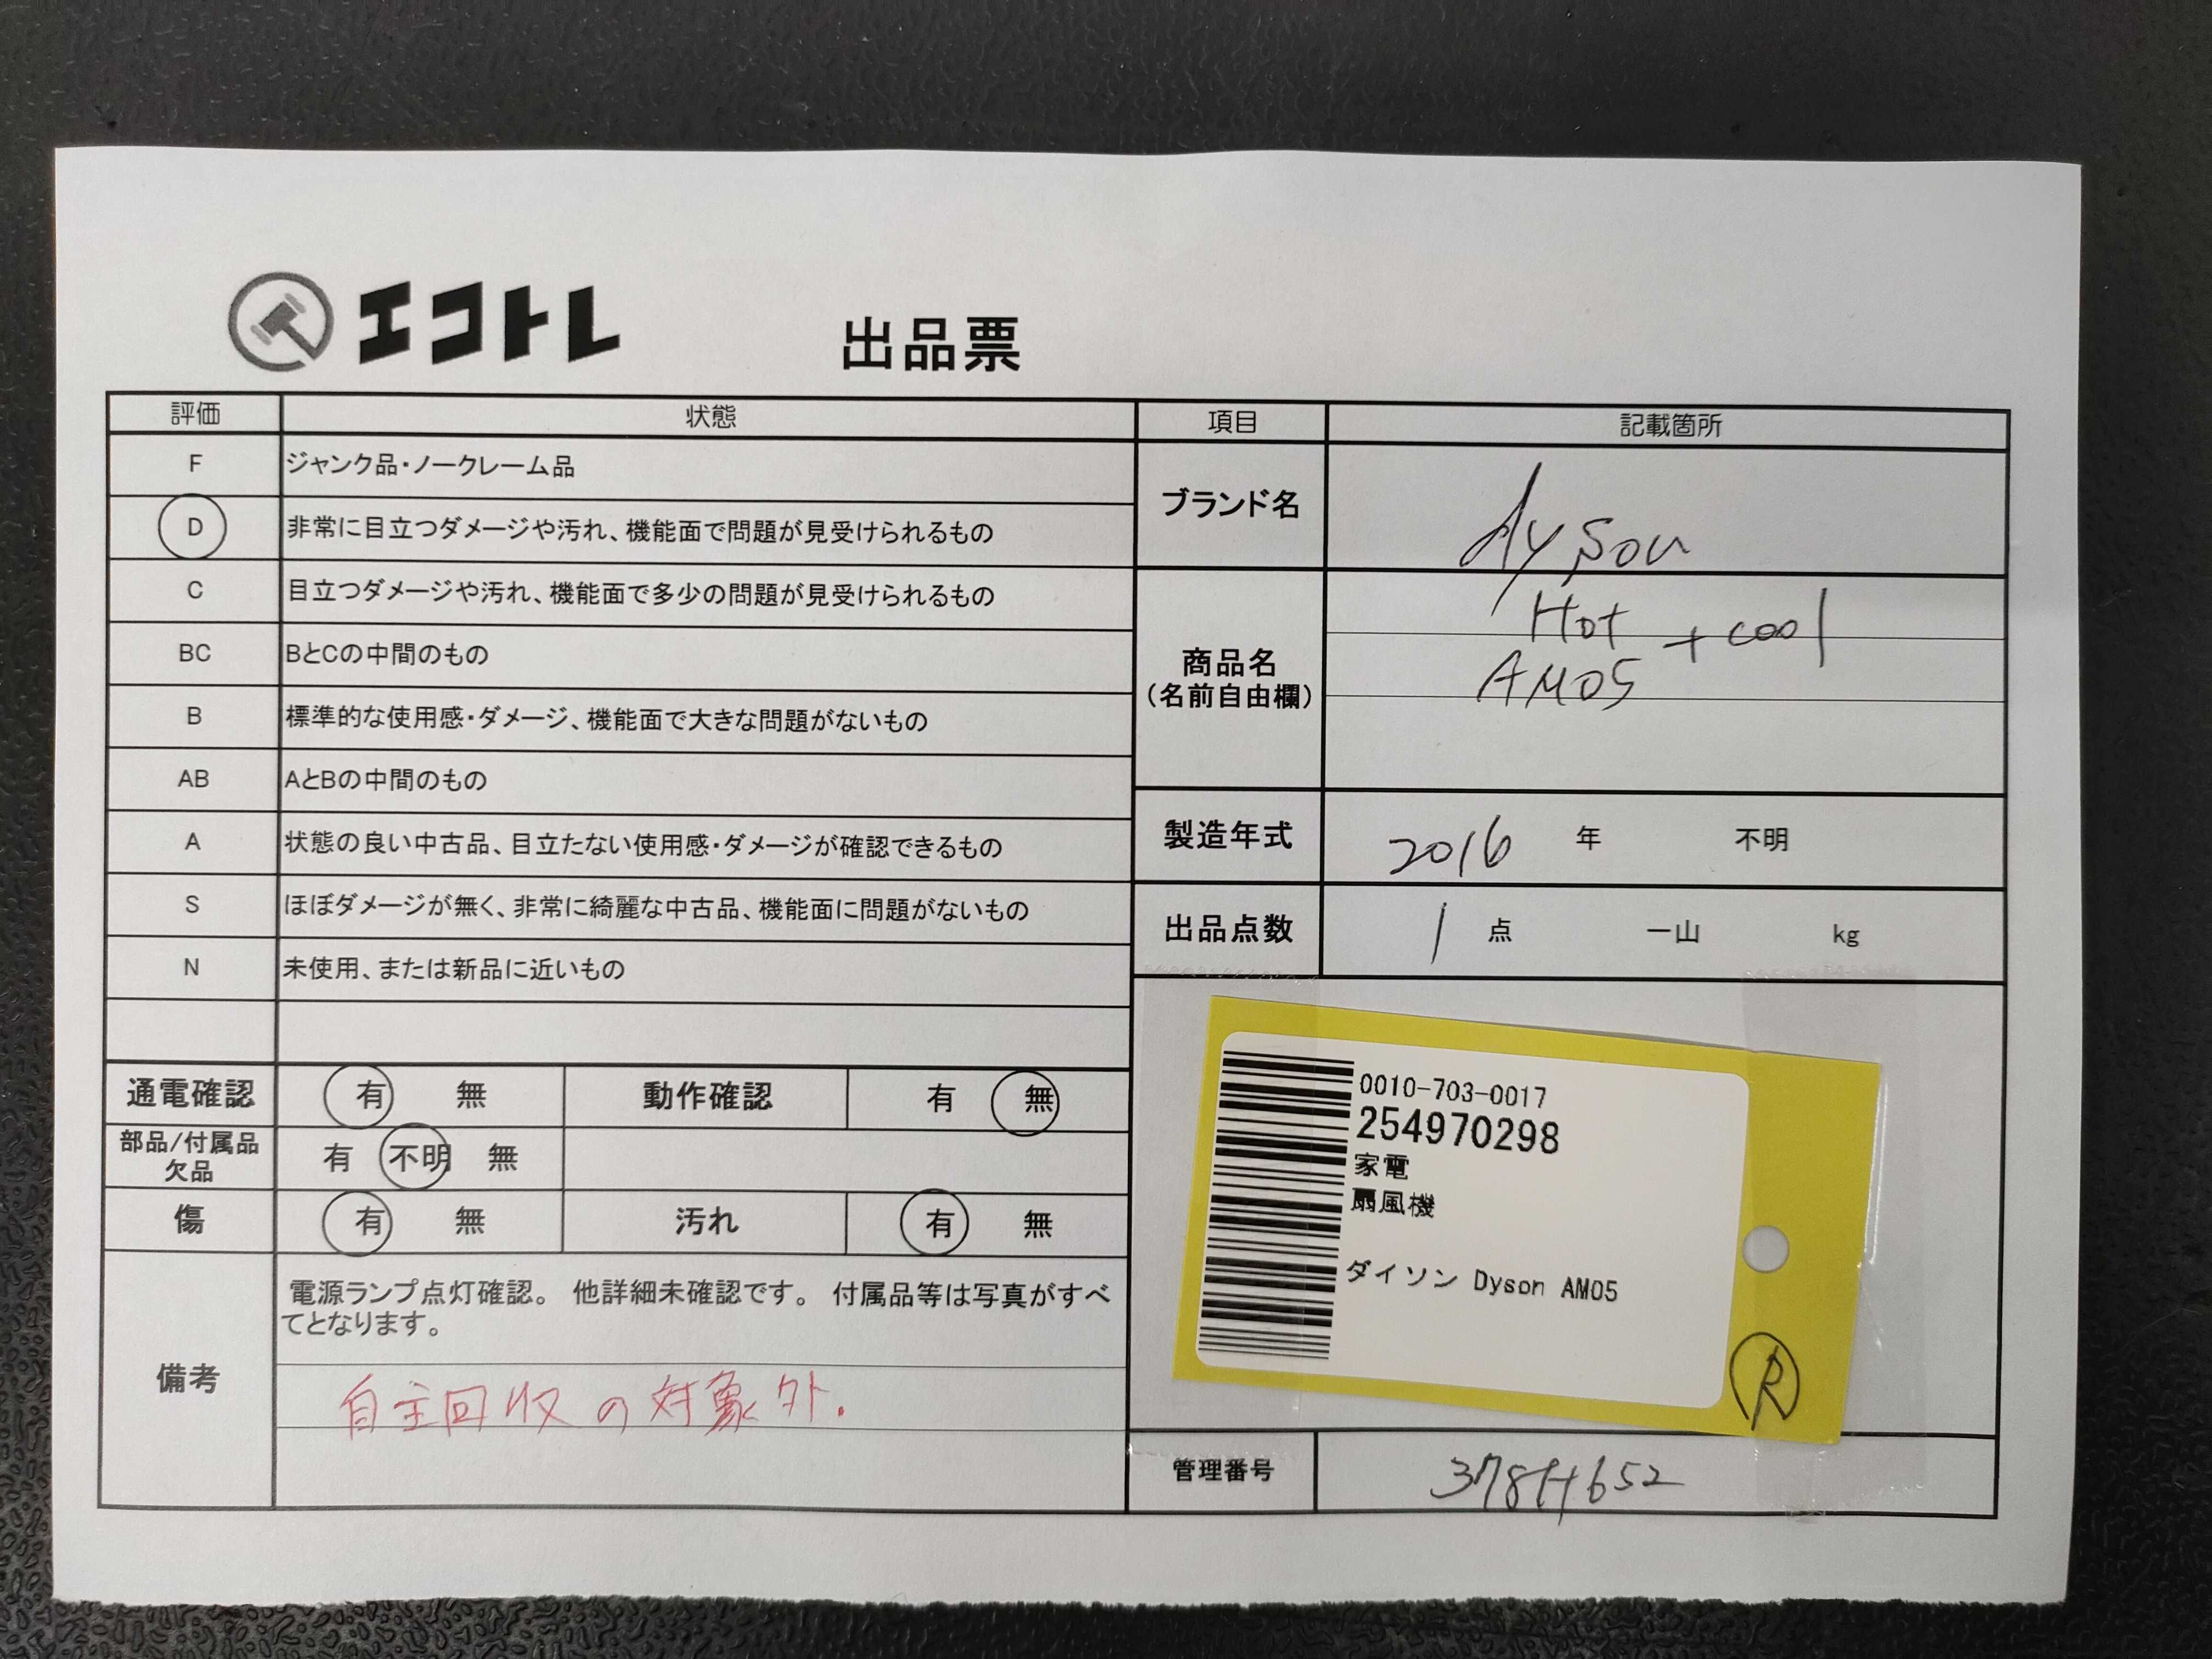 エコトレ
出品票
評価 状態
F ジャンク品・ノークレーム品
D 非常に目立つダメージや汚れ、機能面で問題が見受けられるもの
C 目立つダメージや汚れ、機能面で多少の問題が見受けられるもの
BC BとCの中間のもの
B 標準的な使用感・ダメージ、機能面で大きな問題がないもの
AB AとBの中間のもの
A 状態の良い中古品、目立たない使用感・ダメージが確認できるもの
S ほぼダメージが無く、非常に綺麗な中古品、機能面に問題がないもの
N 未使用、または新品に近いもの
通電確認 有 無 動作確認 有 無
部品/付属品
欠品
有 不明 無
傷 有 無 汚れ 有 無
備考
電源ランプ点灯確認。 他詳細未確認です。 付属品等は写真がすべ
てとなります。
自主回収の対象外.
項目 記載箇所
ブランド名 dyson
商品名
(名前自由欄)
Hot + cool
AM05
製造年式 2016 年 不明
出品点数 1 点 一山 kg
0010-703-0017
254970298
家電
扇風機
ダイソン Dyson AM05
R
管理番号 378H652